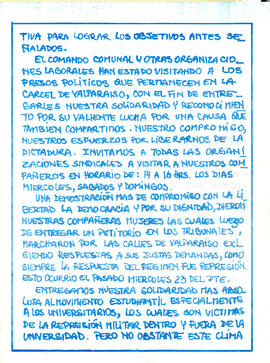 TIVA PARA LOGRAR LOS OBJETIVOS ANTES SE
ÑALADOS.
EL COMANDO COMUNAL Y OTRAS ORGANIZACIO_
NES LABORALES HAN ESTADO VISITANDO A LOS
PRESOS POLITICOS QUE PERMANECEN EN LA
CARCEL DE VALPARAISO, CON EL FIN DE ENTRE_
GARLES NUESTRA SOLIDARIDAD Y RECONOCIMIEN
TO POR SU VALIENTE LUCHA POR UNA CAUSA QUE
TAMBIEN COMPARTIMOS. NUESTRO COMPROMISO,
NUESTROS ESFUERZOS POR LIBERARNOS DE LA
DICTADURA. INVITAMOS A TODAS LAS ORGANI
ZACIONES SINDICALES A VISITAR A NUESTROS COM
PAÑEROS EN HORARIO DE: 14 A 16 HRS. LOS DIAS
MIERCOLES, SABADOS Y DOMINGOS.
UNA DEMOSTRACION MAS DE COMPROMISO CON LA LI
BERTAD LA DEMOCRACIA Y POR SU DIGNIDAD, DIERON
NUESTRAS COMPAÑERAS MUJERES LAS CUALES LUEGO
DE ENTREGAR UN PETITORIO EN LOS TRIBUNALES,
MARCHARON POR LAS CALLES DE VALPARAISO EXI_
GIENDO RESPUESTAS A SUS JUSTAS DEMANDAS, COMO
SIEMPRE LA RESPUESTA DEL REGIMEN FUE REPRESIÓN
ESTO OCURRIO EL PASADO MIERCOLES 23 DEL PTE.
ENTREGAMOS NUESTRA SOLIDARIDAD MAS ABSO
LUTA AL MOVIMIENTO ESTUDIANTIL ESPECIALMENTE
A LOS UNIVERSITARIOS, LOS CUALES SON VICTIMAS
DE LA REPRESIÓN MILITAR DENTRO Y FUERA DE LA
UNIVERSIDAD. PERO NO OBSTANTE ESTE CLIMA